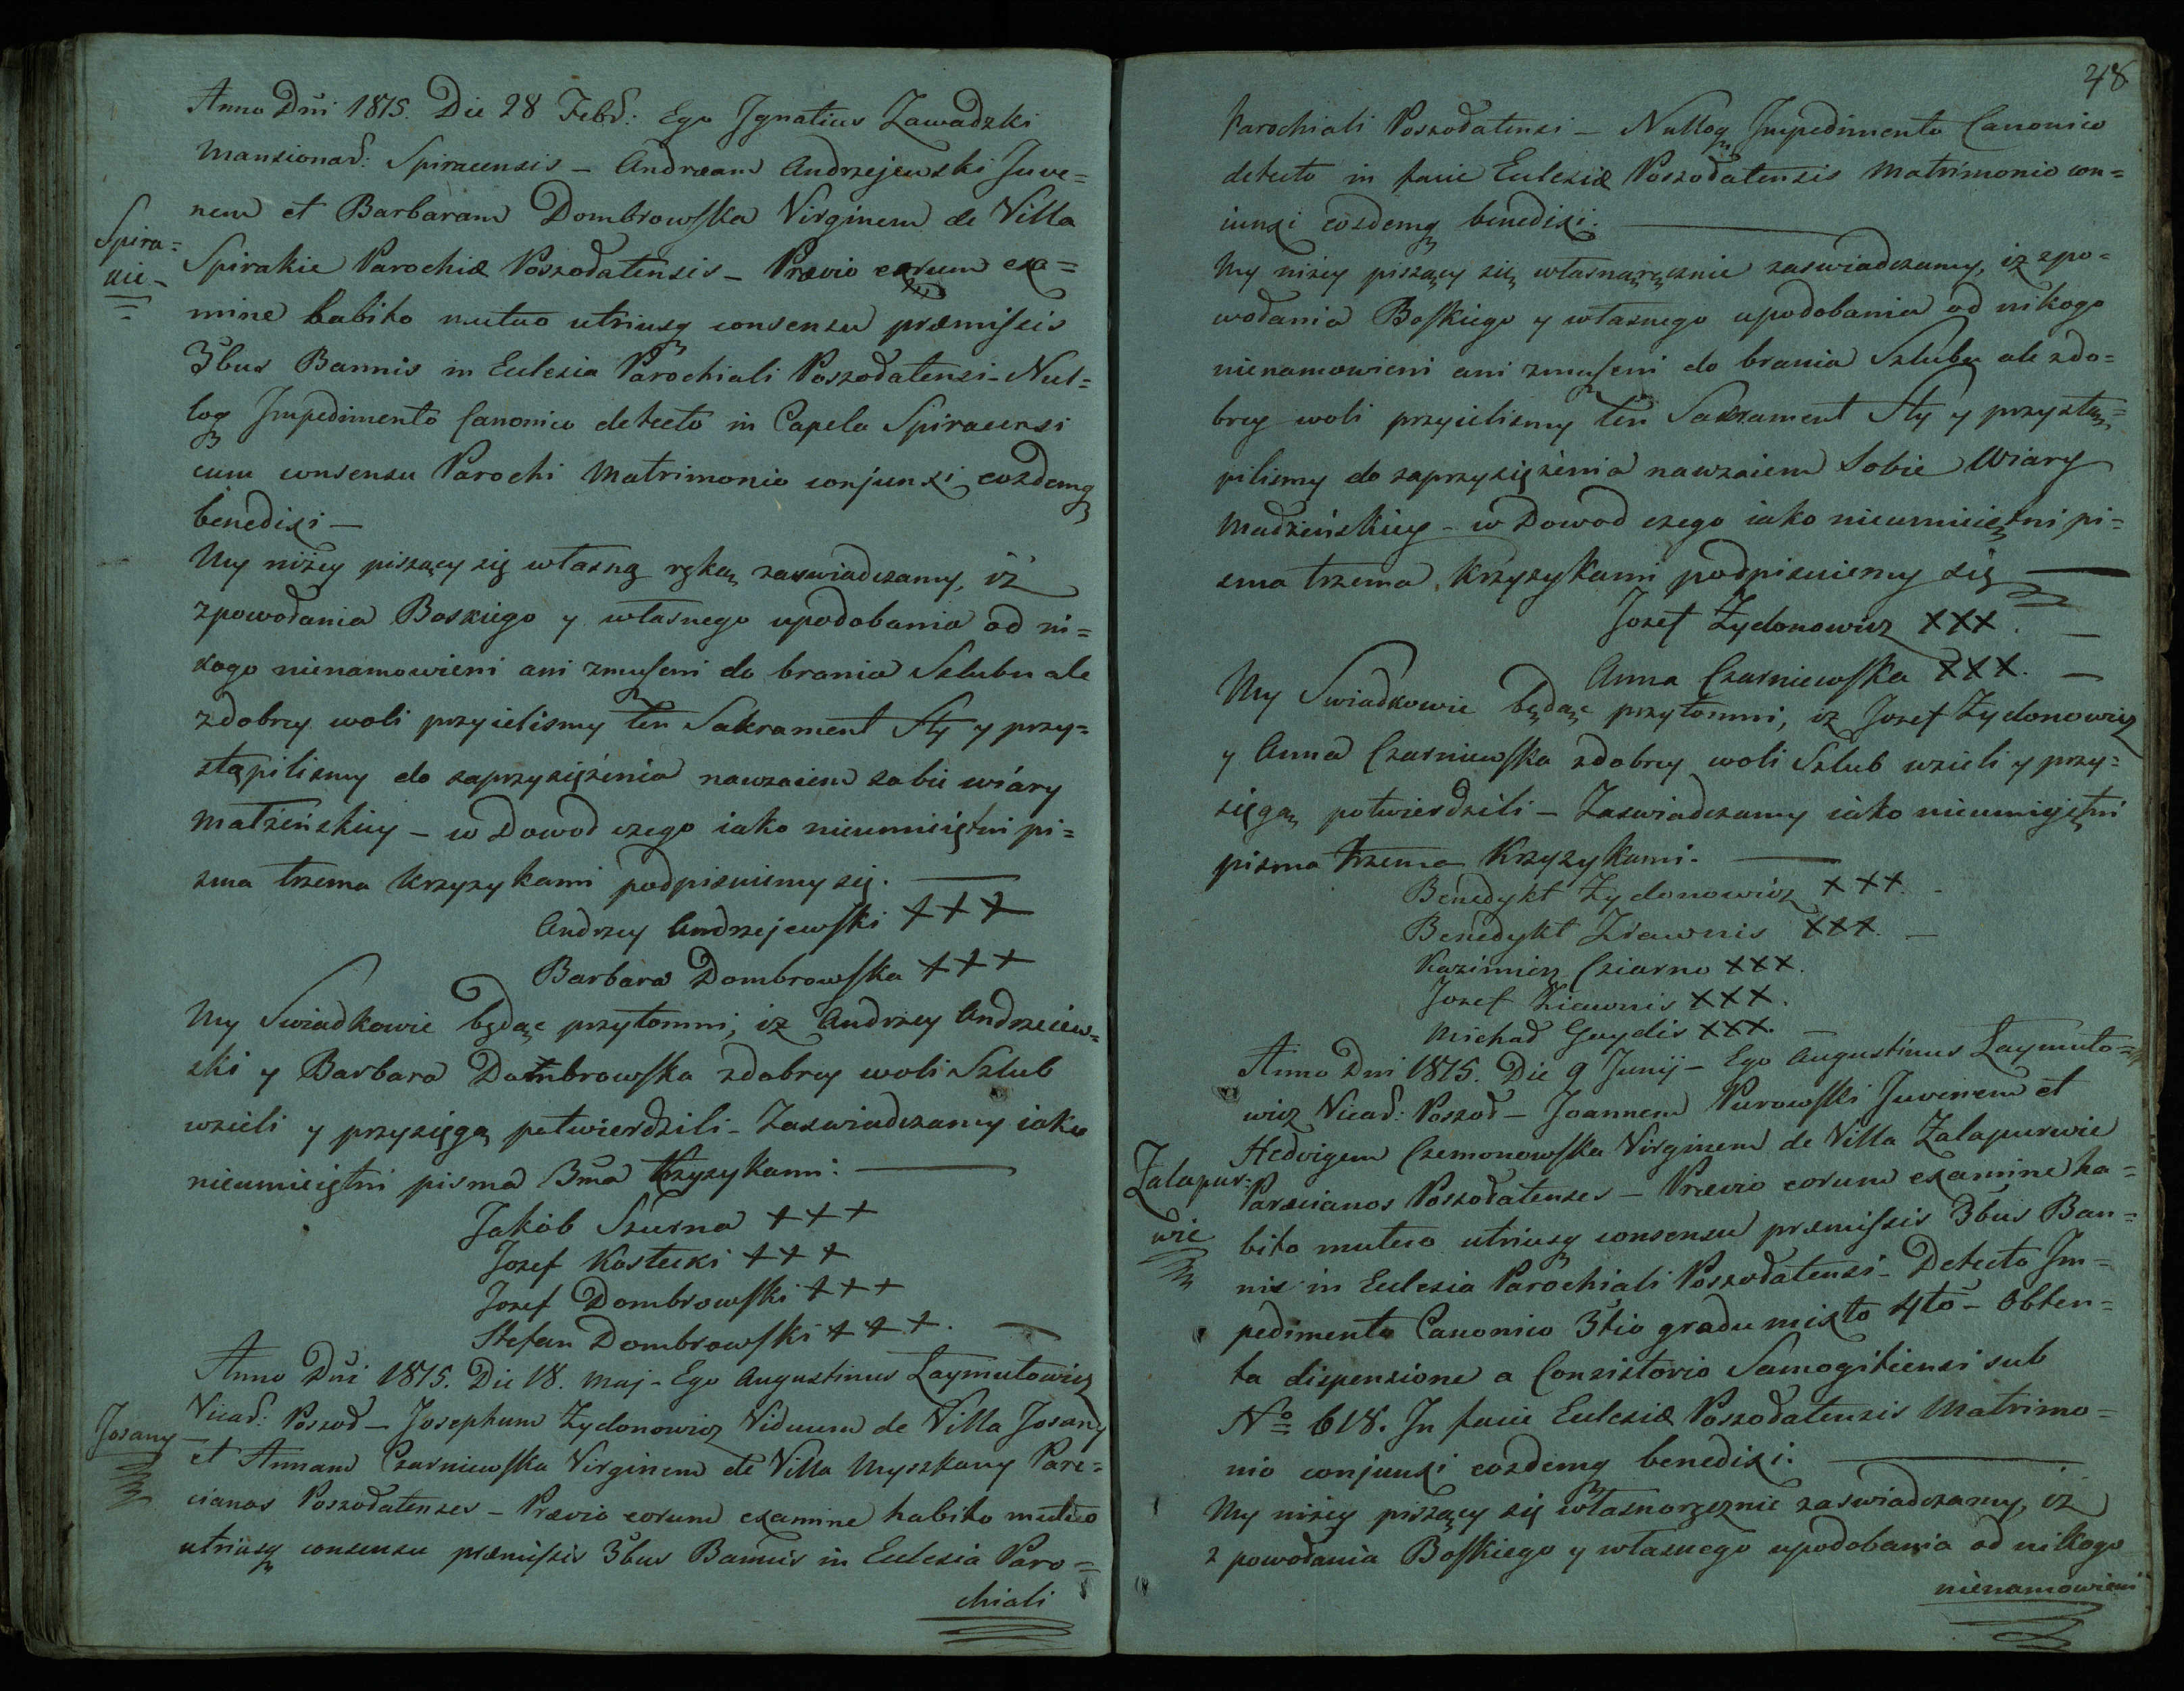 Anno Dñi 1815. Die 28 Febr: Ego Ignatius Zawadzki
Mansionar: Spiracensis – Andræam Andrzejewski Juve=
nem et Barbaram Dombrowska Virginem de Villa
Spira=
nie –
Spirakie Parochiæ Poszodatensis – Prævio eorum exa=
mine habito mutuo utriusq consensu præmissis
3bus Bannis in Eclesia Parochiali Poszodatensi – Nul=
loq Impedimento Canonico detecto in Capela Spiracensi
cum consensu Parochi Matrimonio conjunxi eosdemq
benedixi –
My niżey piszący się własną ręką zaswiadczamy, iż
zpowołania Boskiego y własnego upodobania od ni=
kogo nienamowieni ani zmuszeni do brania Szlubu ale
zdobrey woli przyielismy ten Sakrament Sty y przy=
stąpilismy do zaprzysiężenia nawzaiem sobie wiary
Małzeńskiey – w Dowod czego iako nieumieiętni pi=
sma trzema Krzyzykami podpisuiemy się. –
Andrzey Andrzejewski +++
Barbara Dombrowska +++
My Swiadkowie będąc przytomni, iz Andrzey Andrzeiew=
ski y Barbara Dombrowska zdobrey woli Szlub
wzieli y przysięgą potwierdzili – Zaswiadczamy iako
nieumieiętni pisma 3ma Krzyzykami: –
Jakób Szurna +++
Jozef Kostecki +++
Jozef Dombrowski +++
Stefan Dombrowski +++. –
Anno Dñi 1815. Die 18. Maj – Ego Augustinus Laymutowicz
Josany –
Vicar: Poszod – Josephum Zydonowicz Viduum de Villa Josany
et Annam Czarniewska Virginem de Villa Myszkany Parœ=
cianos Poszodatenses – Prævio eorum examine habito mutuo
utriusq consensu præmissis 3bus Bannis in Eclesia Paro=
chiali
48
Parochiali Poszodatensi – Nulloq Impedimento Canonico
detecto in facie Eclesiæ Poszodatensis Matrimonio con=
iunxi eosdemq benedixi. –
My niżey piszący się własnarącznie zaswiadczamy, iz zpo=
wołania Boskiego y własnego upodobania od nikogo
nienamowieni ani zmuszeni do brania Szlubu ale zdo=
brey woli przyielismy ten Sakrament Sty y przystą=
pilismy do zaprzysiężenia nawzaiem Sobie Wiary
Madzeńskiey – w Dowod czego iako nieumieiętni pi=
sma trzema Krzyzykami podpisuiemy się –
Jozef Zydonowicz XXX. –
Anna Czarniewska XXX. –
My Swiadkowie będąc przytomni, iz Jozef Zydonowicz
y Anna Czarniewska zdobrey woli Szlub wzieli y przy=
sięgą potwierdzili – Zaswiadczamy iako nieumiejętni
pisma trzema Krzyzykami. –
Benedykt Zydonowicz XXX. –
Benedykt Ziawnis XXX. –
Kazimierz Cziarno XXX.
Jozef Ziewnis XXX.
Michał Gaydis XXX. –
Anno Dni 1815. Die 9 Junij – Ego Augustinus Laymuto=
wicz Vicar: Poszod – Joannem Purowski Juvenem et
Hedvigem Czemonowska Virginem de Villa Zalapurwie
Zalapur:
wie
Parœcianos Poszodatenses – Prævio eorum examine ha=
bito mutuo utriusq consensu præmissis 3bus Ban=
nis in Eclesia Parochiali Poszodatensi – Detecto Im=
pedimento Canonico 3tio gradu mixto 4to – Obten=
ta dispensione a Consistorio Samogitiensi sub
No 618. In facie Eclesiæ Poszodatensis Matrimo=
nio conjunxi eosdemq benedixi. –
My niżey piszący się własnoręcznie zaswiadczamy, iż
z powołania Boskiego y własnego upodobania od nikogo
nienamówieni